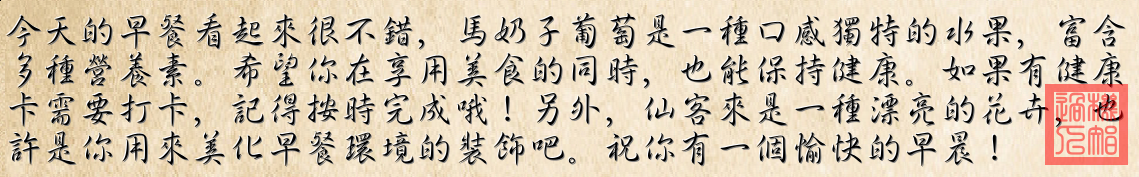 今天的早餐看起來很不錯，馬奶子葡萄是一種口感獨特的水果，富含
多種營養素。希望你在享用美食的同時，也能保持健康。如果有健康
卡需要打卡，記得按時完成哦！另外，仙客來是一種漂亮的花卉，也
許是你用來美化早餐環境的裝飾吧。祝你有一個愉快的早晨！